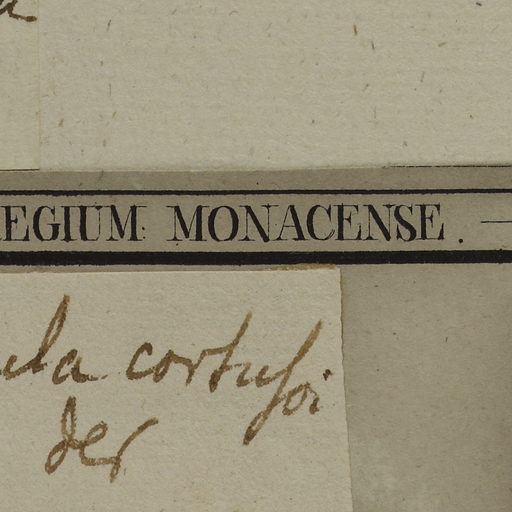 EGIUM MONACENSE.
ula cortusoi
der